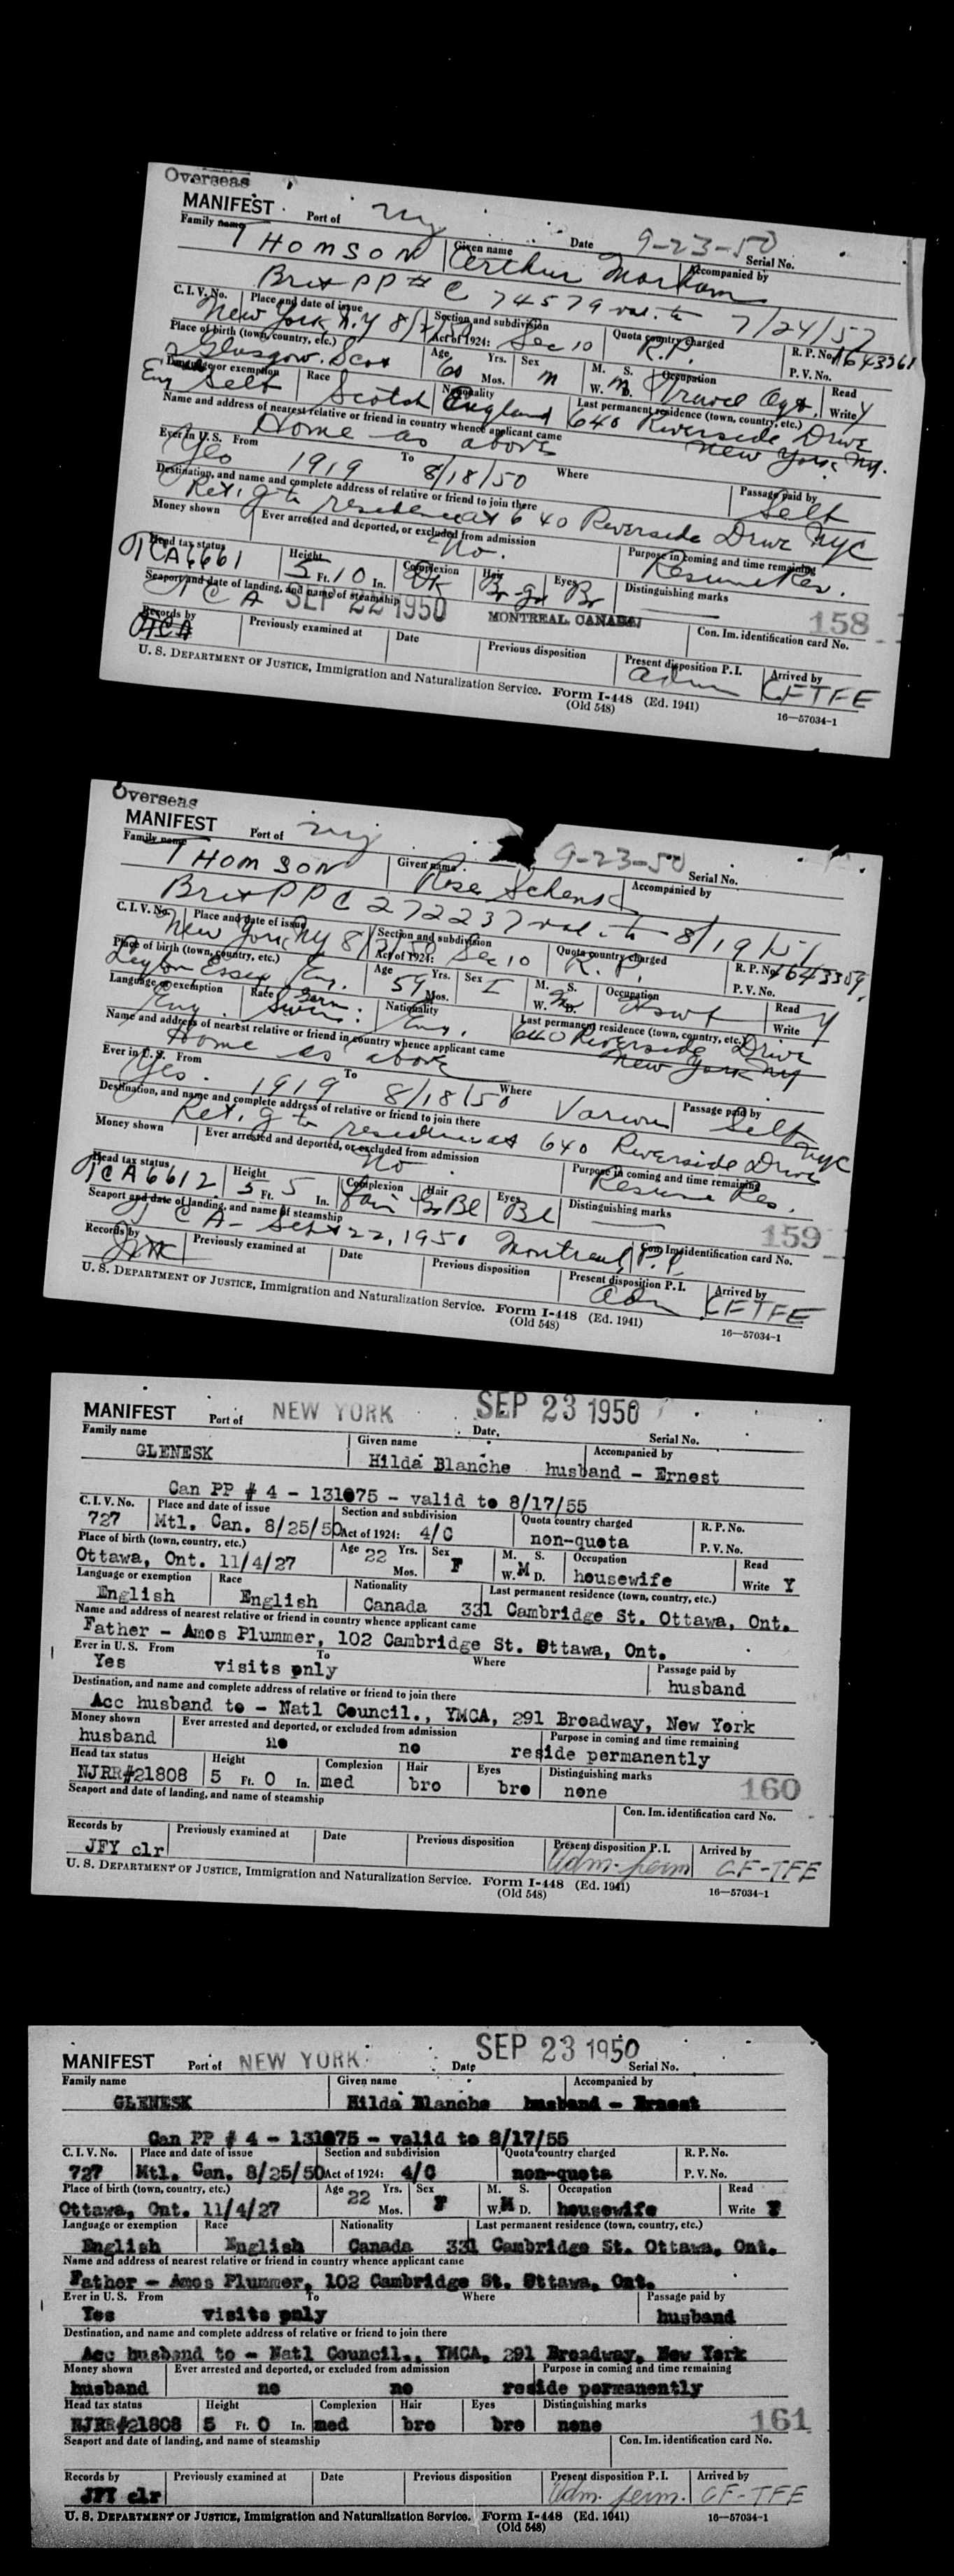 Overseas
MANIFEST Port of NY Date 9-23-50 Serial No.
Family name THOMSON Given name Arthur Accompanied by
Brit PP # C 74579 val. to 7/24/52
C. I. V. No. Place and date of issue New York N.Y Section and subdivision Act of 1924: Sec 10 Quota country charged R.P. R. P. No. P. V. No.
Place of birth (town, country, etc.) Glasgow. Scot Age 60 Yrs. Mos. Sex M M. S. W. D. M Occupation Travel Agt. Read Write Y
Language or exemption Eng Self Race Scotch Nationality England Last permanent residence (town, country, etc.) 640 Riverside Drive New York NY.
Name and address of nearest relative or friend in country whence applicant came Home as above
Ever in U. S. From Yes 1919 To 8/18/50 Where Passage paid by Self
Destination, and name and complete address of relative or friend to join there Ret'g to residence at 640 Riverside Drive NYC
Money shown Ever arrested and deported, or excluded from admission No. Purpose in coming and time remaining Resume Res.
Head tax status TCA6661 Height 5 Ft. 10 In. Complexion Dk Hair Br-gr Eyes Br Distinguishing marks 158
Seaport and date of landing, and name of steamship TCA SEP 22 1950 MONTREAL, CANADA Con. Im. identification card No.
Records by TCA Previously examined at Date Previous disposition Present disposition P. I. adm Arrived by CFTFE
U. S. DEPARTMENT OF JUSTICE, Immigration and Naturalization Service. Form I-448 (Ed. 1941) 16—57034-1
(Old 548)
Overseas
MANIFEST Port of NY 9-23-50 Serial No.
Family name THOMSON Given name Rose Schenk Accompanied by
Brit PP C 272237 val. to 8/19/51
C. I. V. No. Place and date of issue New York NY Section and subdivision Act of 1924: Sec 10 Quota country charged R.P. R. P. No. P. V. No.
Place of birth (town, country, etc.) Leyton Essex Eng. Age 59 Yrs. Mos. Sex F M. S. W. D. M Occupation Hswf Read Write Y
Language or exemption Eng. Race Nationality Eng. Last permanent residence (town, country, etc.) 640 Riverside Drive New York NY
Name and address of nearest relative or friend in country whence applicant came Home as above
Ever in U. S. From Yes. 1919 To 8/18/50 Where Various Passage paid by Self
Destination, and name and complete address of relative or friend to join there Ret'g to residence at 640 Riverside Drive NYC
Money shown Ever arrested and deported, or excluded from admission No Purpose in coming and time remaining Resume Res.
Head tax status TCA6612 Height 5 Ft. 5 In. Complexion Fair Hair Eyes Bl Distinguishing marks 159
Seaport and date of landing, and name of steamship TCA- Sept 22, 1950 Montreal, P.Q. Con. Im. identification card No.
Records by Previously examined at Date Previous disposition Present disposition P. I. adm Arrived by CFTFE
U. S. DEPARTMENT OF JUSTICE, Immigration and Naturalization Service. Form I-448 (Ed. 1941) 16—57034-1
(Old 548)
MANIFEST Port of NEW YORK Date SEP 23 1950 Serial No.
Family name Given name Accompanied by
GLENESK Hilda Blanche husband - Ernest
Can PP # 4 - 131075 - valid to 8/17/55
C. I. V. No. Place and date of issue Section and subdivision Quota country charged R. P. No.
727 Mtl. Can. 8/25/50 Act of 1924: 4/C non-quota P. V. No.
Place of birth (town, country, etc.) Age 22 Yrs. Mos. Sex F M. S. W. M D. Occupation Read
Ottawa, Ont. 11/4/27 housewife Write Y
Language or exemption Race Nationality Last permanent residence (town, country, etc.)
English English Canada 331 Cambridge St. Ottawa, Ont.
Name and address of nearest relative or friend in country whence applicant came
Father - Amos Plummer, 102 Cambridge St. Ottawa, Ont.
Ever in U. S. From To Where Passage paid by
Yes visits only husband
Destination, and name and complete address of relative or friend to join there
Acc husband to - Natl Council., YMCA, 291 Broadway, New York
Money shown Ever arrested and deported, or excluded from admission Purpose in coming and time remaining
husband no no reside permanently
Head tax status Height Complexion Hair Eyes Distinguishing marks
NJRR#21808 5 Ft. 0 In. med bro bro none 160
Seaport and date of landing, and name of steamship Con. Im. identification card No.
Records by Previously examined at Date Previous disposition Present disposition P. I. Arrived by
JFY clr Adm. perm CF-TFE
U. S. DEPARTMENT OF JUSTICE, Immigration and Naturalization Service. Form I-448 (Ed. 1941) 16—57034-1
(Old 548)
MANIFEST Port of NEW YORK Date SEP 23 1950 Serial No.
Family name Given name Accompanied by
GLENESK Hilda Blanche husband - Ernest
Can PP # 4 - 131075 - valid to 8/17/55
C. I. V. No. Place and date of issue Section and subdivision Quota country charged R. P. No.
727 Mtl. Can. 8/25/50 Act of 1924: 4/C non-quota P. V. No.
Place of birth (town, country, etc.) Age 22 Yrs. Mos. Sex F M. S. W. M D. Occupation Read
Ottawa, Ont. 11/4/27 housewife Write Y
Language or exemption Race Nationality Last permanent residence (town, country, etc.)
English English Canada 331 Cambridge St. Ottawa, Ont.
Name and address of nearest relative or friend in country whence applicant came
Father - Amos Plummer, 102 Cambridge St. Ottawa, Ont.
Ever in U. S. From To Where Passage paid by
Yes visits only husband
Destination, and name and complete address of relative or friend to join there
Acc husband to - Natl Council., YMCA, 291 Broadway, New York
Money shown Ever arrested and deported, or excluded from admission Purpose in coming and time remaining
husband no no reside permanently
Head tax status Height Complexion Hair Eyes Distinguishing marks
NJRR#21808 5 Ft. 0 In. med bro bro none 161
Seaport and date of landing, and name of steamship Con. Im. identification card No.
Records by Previously examined at Date Previous disposition Present disposition P. I. Arrived by
JFY clr Adm. perm. CF-TFE
U. S. DEPARTMENT OF JUSTICE, Immigration and Naturalization Service. Form I-448 (Ed. 1941) 16—57034-1
(Old 548)